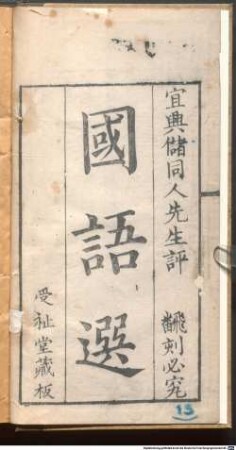 宜興儲同人先生評
翻刻必究
國語選
受祉堂藏板
13